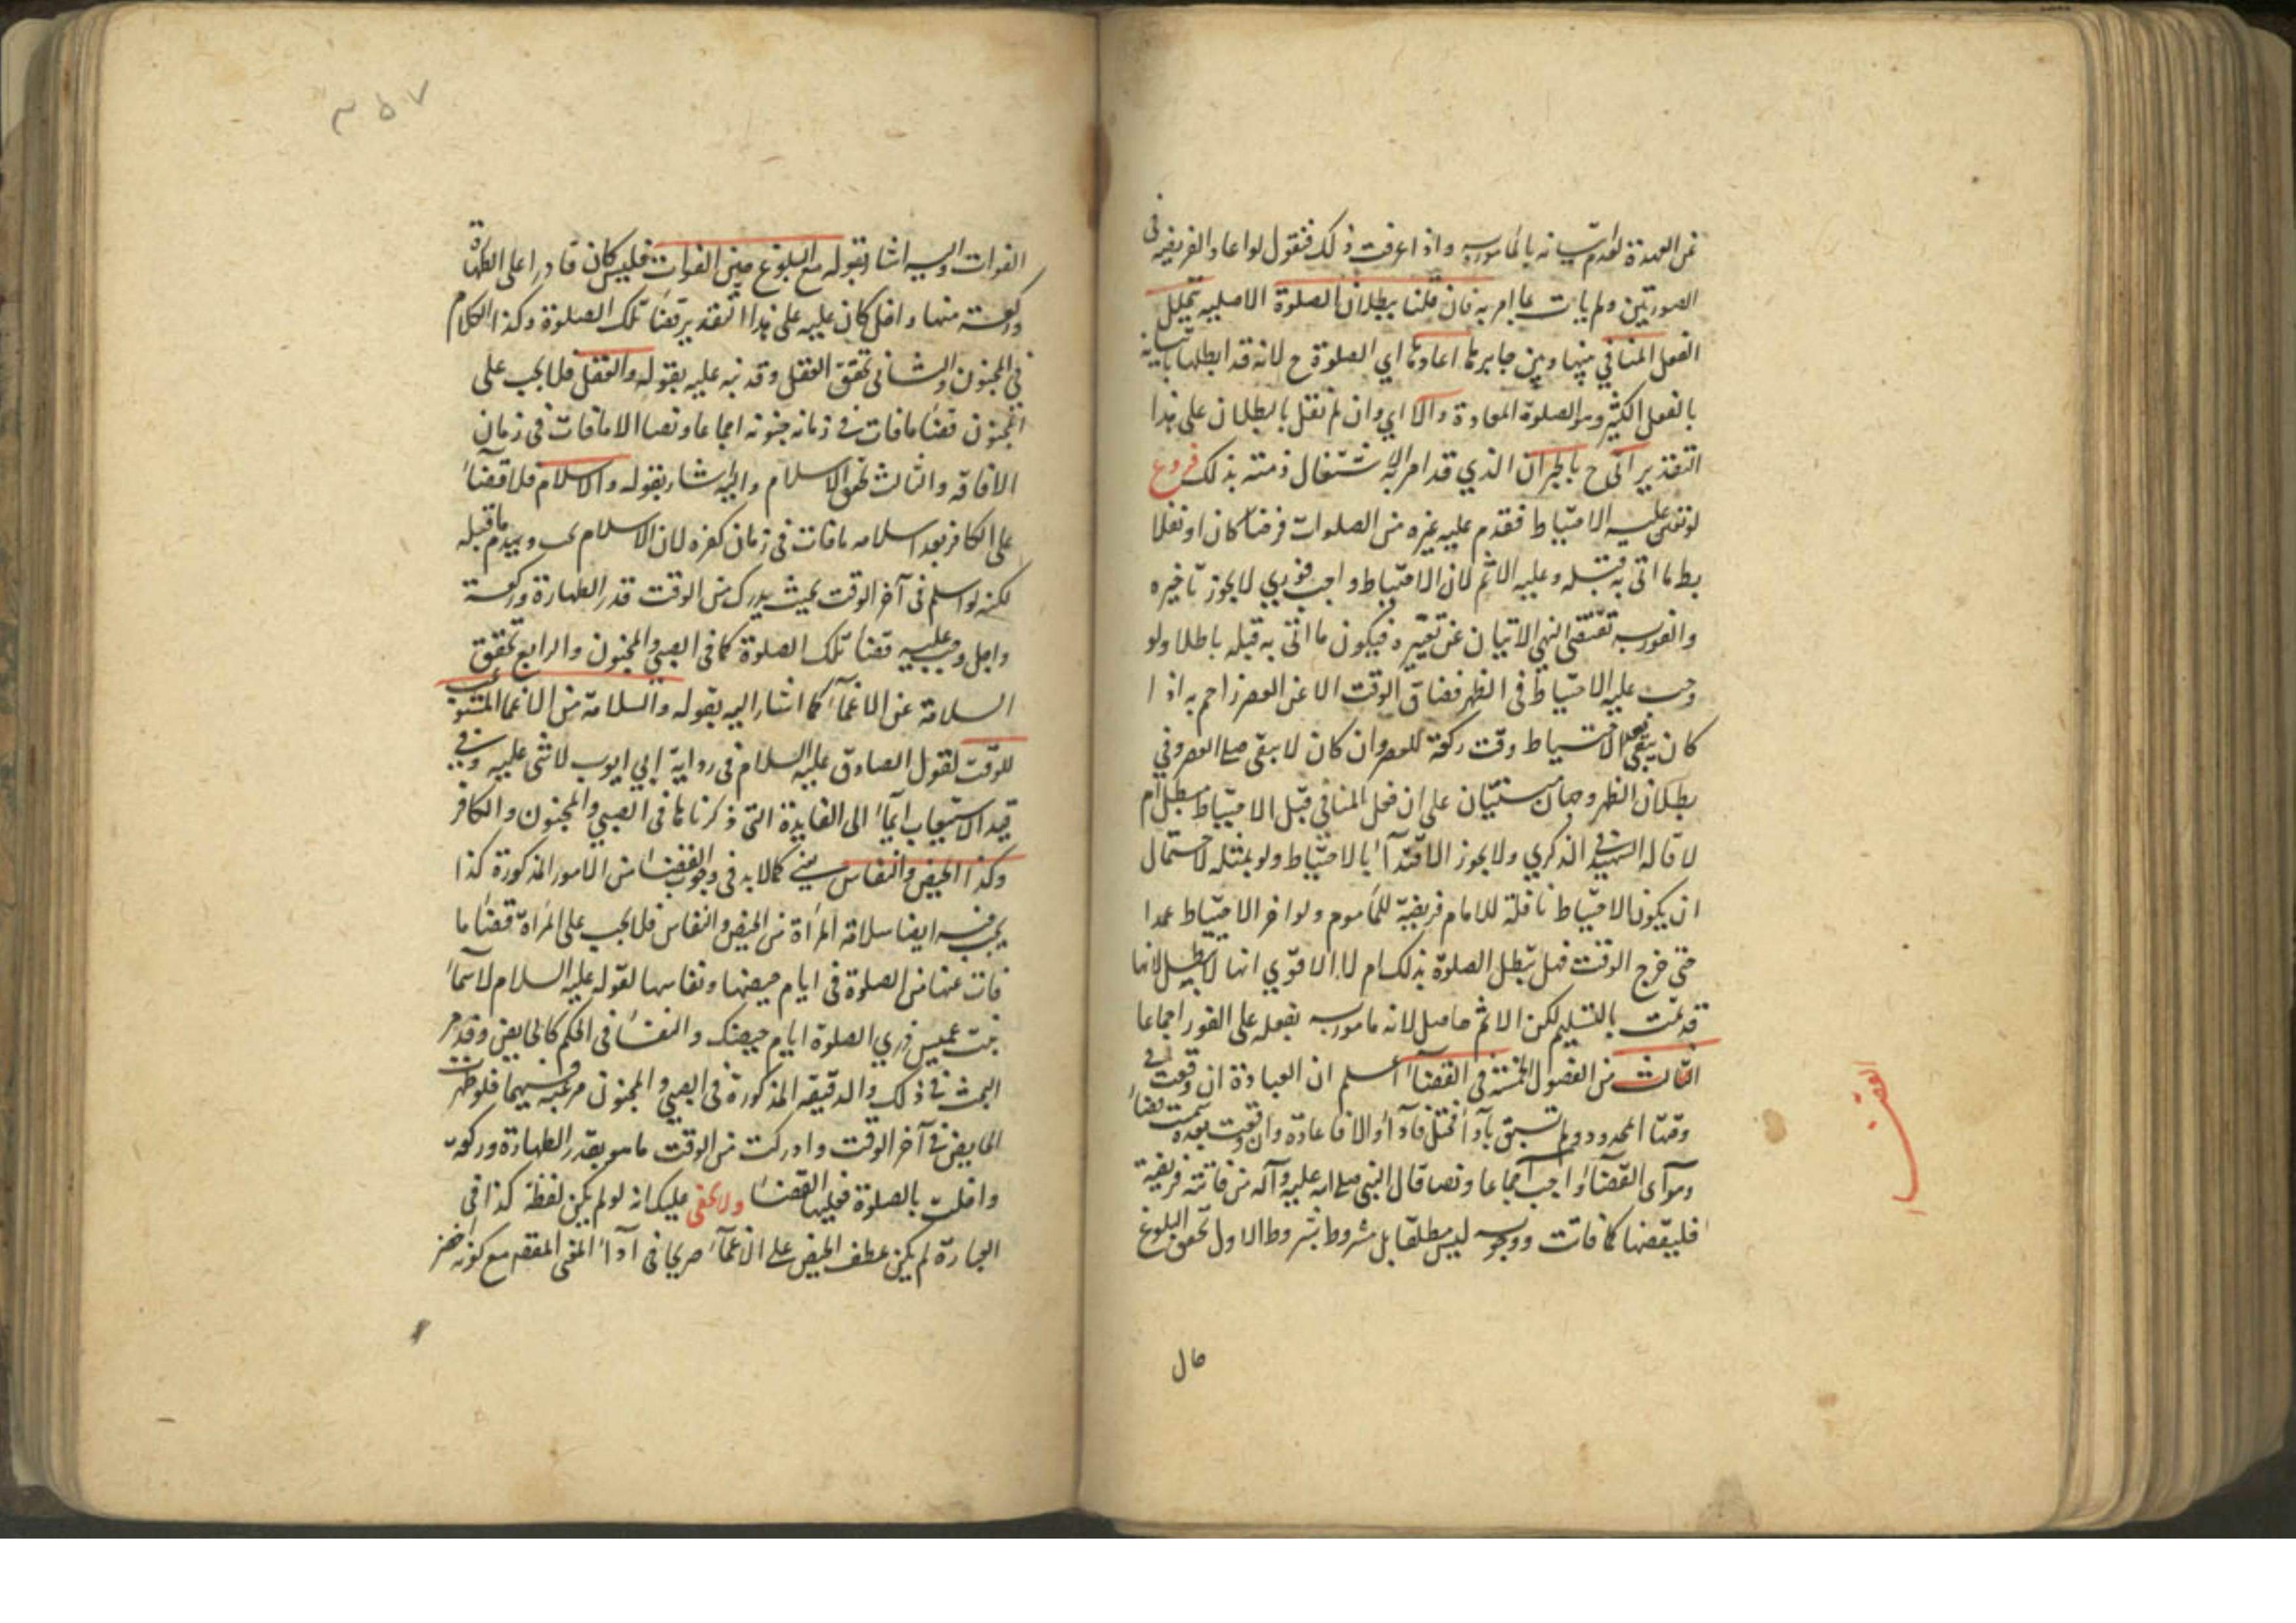 عن العهدة لعدم اتيانه بالمأمور به واذا عرفت ذلك فنقول لو اعاد الفريضة في
الصورتين ولم يات بما امر به فان قلنا ببطلان الصلوة الاصلية بتخلل
الفعل المنافي بينها وبين جابرها اعادها اي الصلوة ح لانه قد ابطلها باتيانه
بالفعل الكثير وهو الصلوة المعادة والا اي وان لم نقل بالبطلان على هذا
التقدير اتى ح بالجبران الذي قد امر به لاشتغال ذمته بذلك فروع
لو تعين عليه الاحتياط فقدم عليه غيره من الصلوات فرضا كان او نفلا
بطل ما اتى به قبله وعليه الاثم لان الاحتياط واجب فوري لا يجوز تاخيره
والفورية تقتضى النهي الاتيان عن غيره فيكون ما اتى به قبله باطلا ولو
وجب عليه الاحتياط في الظهر فضاق الوقت الا عن العصر زاحم به اذا
كان يبقى بعد الاحتياط وقت ركعة للعصر وان كان لا يبقى صلى العصر وفي
بطلان الظهر وجهان مبنيان على ان فعل المنافي قبل الاحتياط مبطل ام
لا قاله الشهيد في الذكري ولا يجوز الاقتدآء بالاحتياط ولو بمثله لاحتمال
ان يكون الاحتياط نافلة للامام فريضة للمأموم ولو اخر الاحتياط عمدا
حتى خرج الوقت فهل تبطل الصلوة بذلك ام لا الاقوي انها لا تبطل لانها
قد تمت بالتسليم لكن الاثم حاصل لانه مامور به بفعله على الفور اجماعا
الثالث من الفصول الخمسة في القضآء اعلم ان العبادة ان وقعت في
وقتها المحدود ولم تسبق بادآء مختل فادآء والا فاعادة وان وقعت بعده سميت قضاء
وهو اى القضآء واجب اجماعا ونصا قال النبي صلى الله عليه وآله من فاتته فريضة
فليقضها كما فاتت ووجوبه ليس مطلقا بل مشروط بشروط الاول تحقق البلوغ
حال
القضا
٣٥٧
الفوات واليه اشار بقوله مع البلوغ حين الفوات فليس كان قادرا على الطهارة
وركعة منها واخل كان عليه على هذا التقدير قضاء تلك الصلوة وكذا الكلام
في المجنون والثانى تحقق العقل وقد نبه عليه بقوله والعقل فلا يجب على
المجنون قضاء ما فات في زمانه جنونه اجماعا ونصا الا ما فات في زمان
الافاقة والثالث تحقق الاسلام واليه اشار بقوله والاسلام فلا قضآء
على الكافر بعد اسلامه ما فات في زمان كفره لان الاسلام يجب ويهدم ما قبله
لكنه لو اسلم في آخر الوقت بحيث يدرك من الوقت قدر الطهارة وركعة
واخل وجب عليه قضا تلك الصلوة كما في الصبي والمجنون والرابع تحقق
السلامة عن الاغمآء كما اشار اليه بقوله والسلامة من الاغما المستوعب
للوقت لقول الصادق عليه السلام في رواية ابي ايوب لا شى عليه وفي
قيد الاستيعاب ايمآء الى الفايدة التى ذكرناها في الصبي والمجنون والكافر
وكذا الحيض والنفاس يعني كما لا بد في وجوب القضاء من الامور المذكورة كذا
يجب فيه ايضا سلامة المرأة من الحيض والنفاس فلا يجب على المرأة قضاء ما
فات عنها من الصلوة في ايام حيضها ونفاسها لقوله عليه السلام لاسمآء
بنت عميس ذري الصلوة ايام حيضك والنفساء في الحكم كالحايض وقد مر
البحث في ذلك والدقيقة المذكورة في الصبي والمجنون مرعية فيهما فلو طهرت
الحايض في آخر الوقت وادركت من الوقت ما هو بقدر الطهارة وركعة
واخلت بالصلوة فعليها القضاء ولا يخفى عليك انه لو لم يكن لفظة كذا في
العبارة لم يكن عطف الحيض على الاغمآء صريحا في ادآء المعنى المقصود مع كونه اخصر